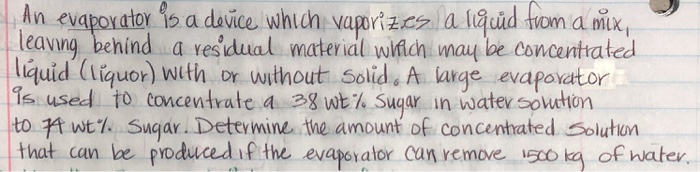 An evaporator is a device which vaporizes a liquid from a mix,
leaving behind a residual material which may be concentrated
liquid (liquor) with or without solid. A large evaporator
is used to concentrate a 38 wt% sugar in water solution
to 74 wt% sugar. Determine the amount of concentrated solution
that can be produced if the evaporator can remove 1500 kg of water.